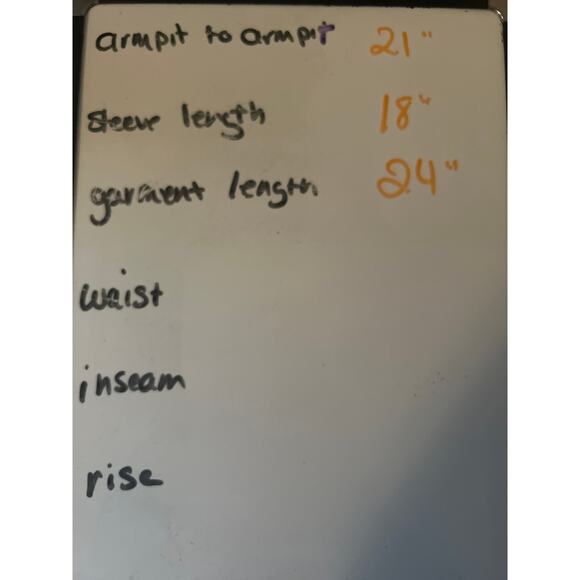 armpit to armpit 21"
sleeve length 18"
garment length 24"
waist
inseam
rise